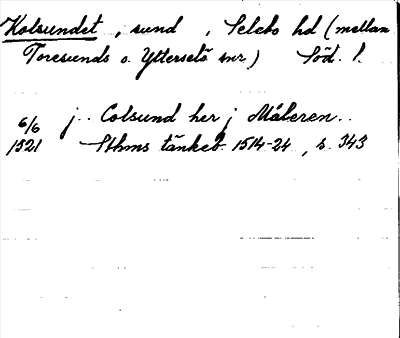 Kolsundet, sund, Selebo hd (mellan
Toresunds o. Ytterselö snr) Söd. l.
6/6 j.. Colsund her j Mäleren..
1521 Sthms tänkeb. 1514-24, s. 343